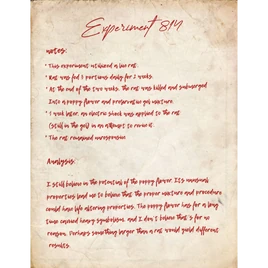 Experiment 814
notes:
* This experiment utilized a live rat.
* Rat was fed 3 portions daily for 2 weeks.
* At the end of the two weeks, the rat was killed and submerged
Into a poppy flower and preservative gel mixture.
* 1 week later, an electric shock was applied to the rat
(still in the gel) in an attempt to revive it
* The rat remained unresponsive
Analysis:
I still believe in the potential of the poppy flower. Its unusual
properties lead me to believe that the proper mixture and procedure
could have life altering properties. The poppy flower has for a long
time carried heavy symbolism, and I don't believe that's for no
reason. Perhaps something larger than a rat would yield different
results.